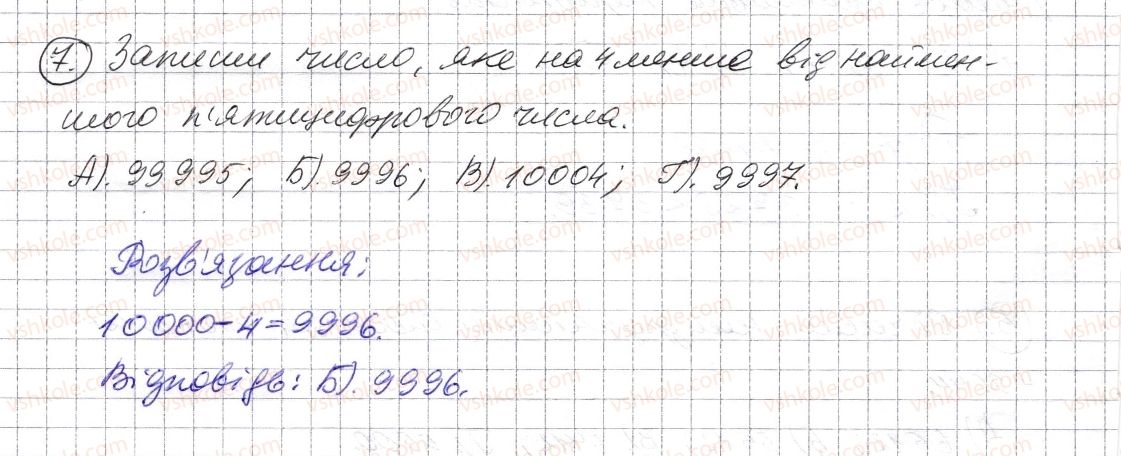 7. Запиши число, яке на 4 менше від наймен-
шого п'ятицифрового числа.
А). 99995; Б). 9996; В). 10004; Г). 9997.
Розв'язання:
10000-4=9996.
Відповідь: Б). 9996.